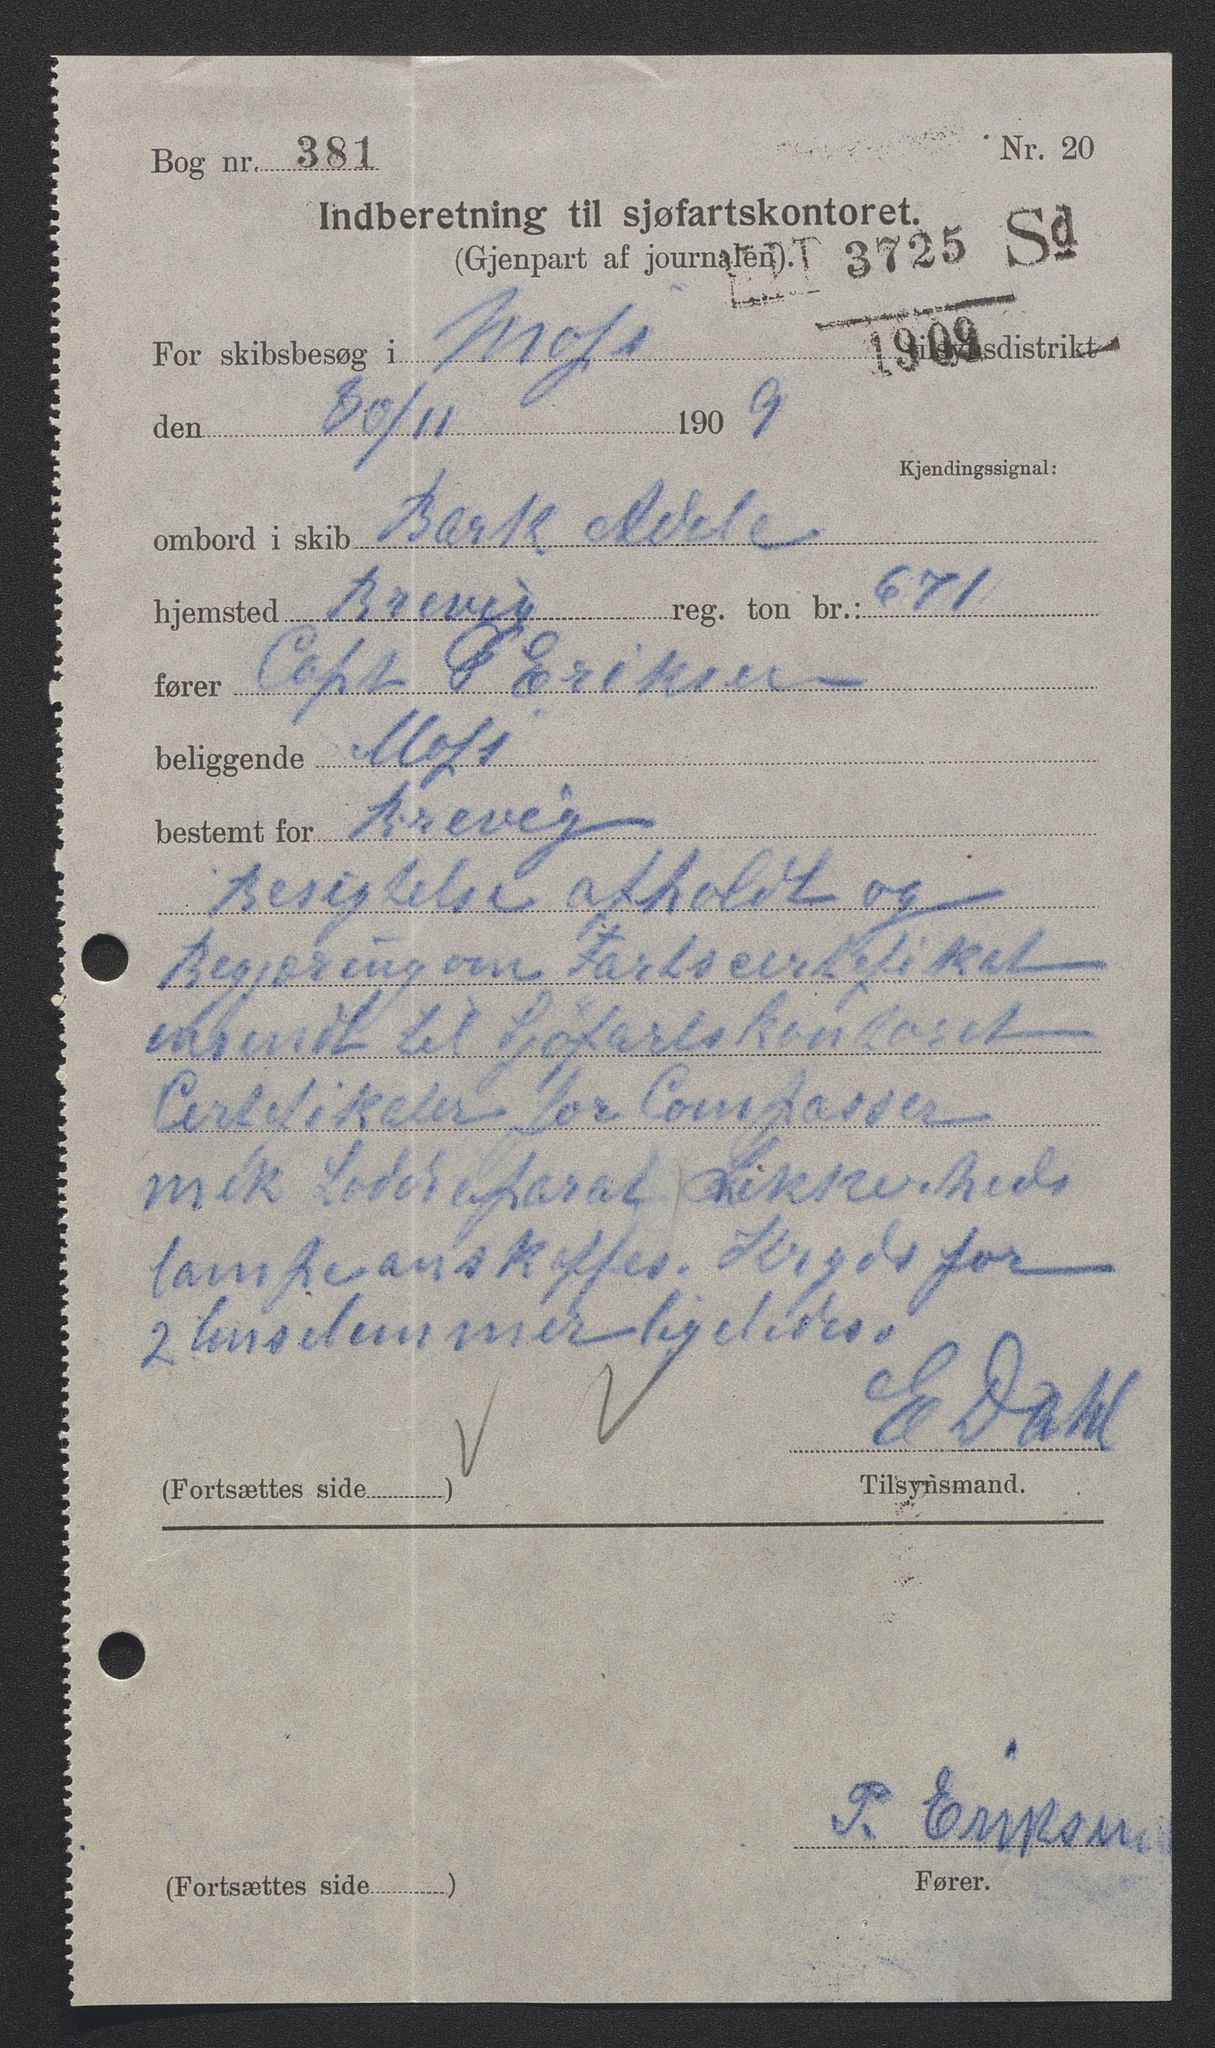 Bog nr. 381
Nr. 20
Indberetning til sjøfartskontoret.
(Gjenpart af journalen).
3725 Sd
1909
For skibsbesøg i Moss tilsynsdistrikt
den 30/11 1909
Kjendingssignal:
ombord i skib Bark Adele
hjemsted Brevig reg. ton br.: 671
fører Capt T Eriksen
beliggende Moss
bestemt for Brevig
Besigtelse afholdt og
Begjæring om Fartscertifikat
insendt til Sjøfartskontoret
Certifikater for Compasser
mek Loddeaparat Sikkerheds
lampe anskaffes. Kryds for
2 ligeledes.
E Dahl
(Fortsættes side )
Tilsynsmand.
T. Eriksen
(Fortsættes side )
Fører.